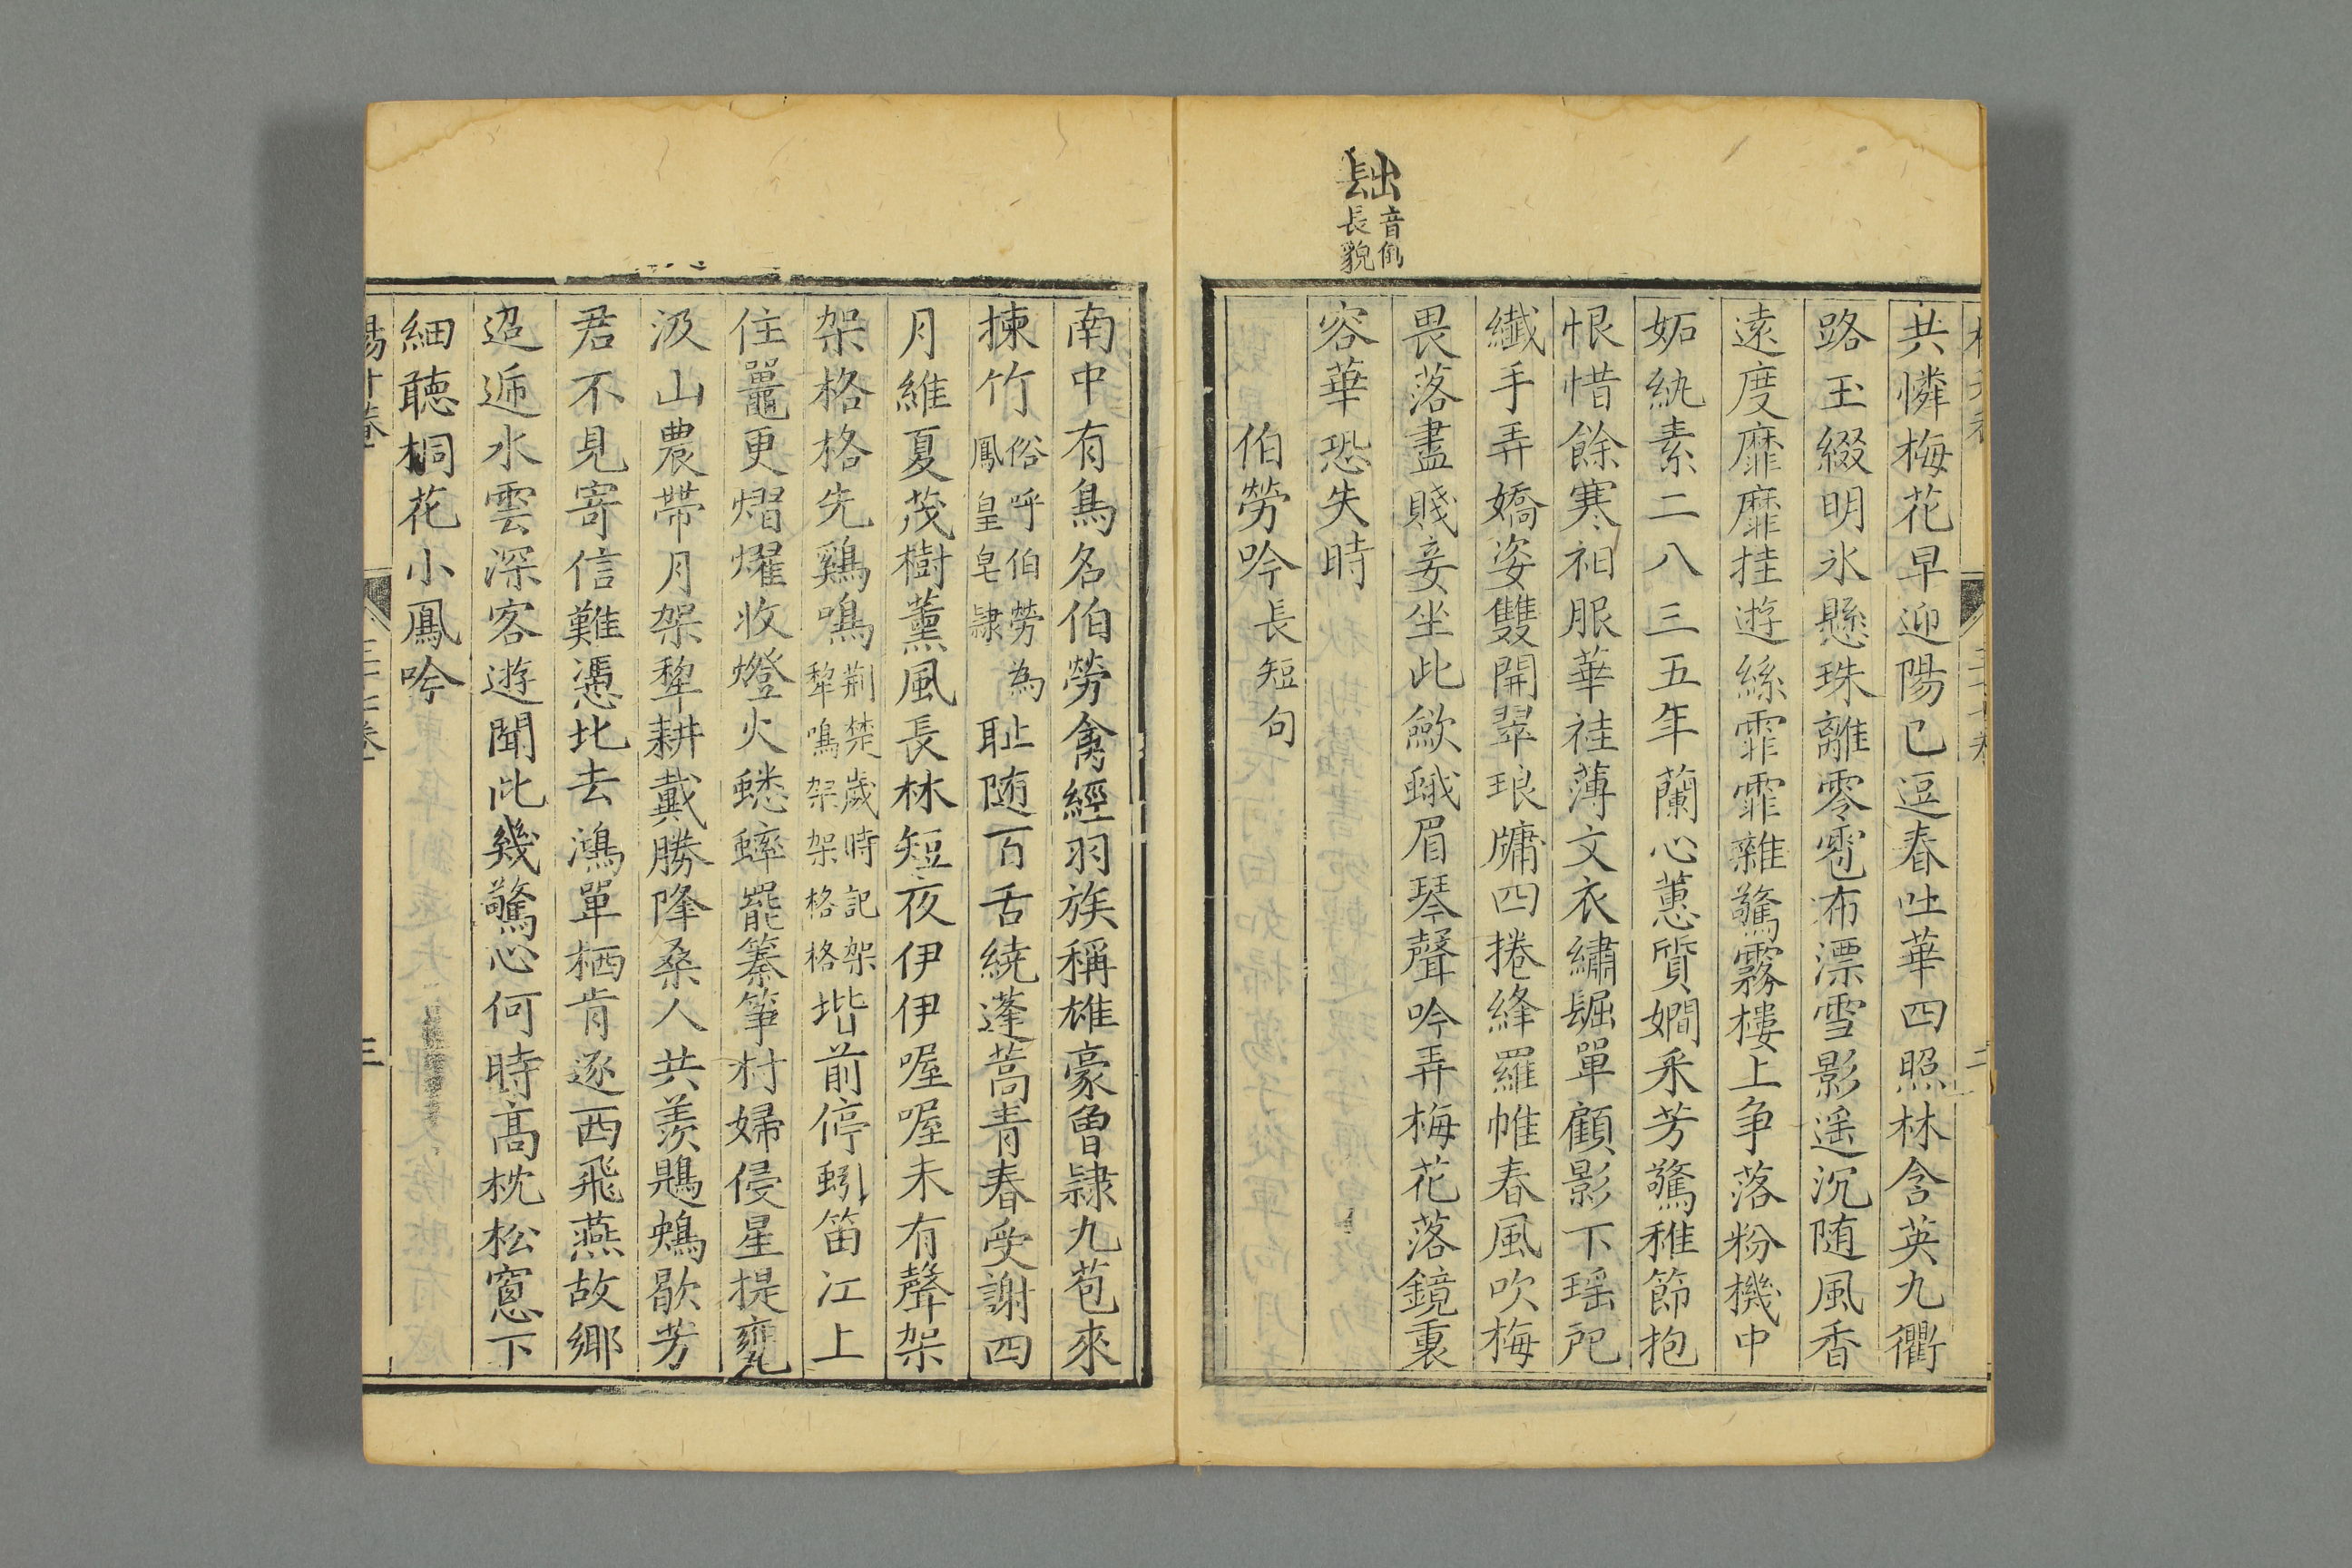 共憐梅花早迎陽已逗春吐華四照林含英九衢
路玉綴明氷懸珠離零雹布漂雪影遥沉随風香
遠度靡靡挂遊絲霏霏雜驚霧樓上争落粉機中
妬紈素二八三五年蘭心蕙質嫺采芳驚稚節抱
恨惜餘寒袒服華袿薄文衣繡䦆單顧影下瑶戺
纎手弄嬌姿雙開翠琅牗四捲絳羅帷春風吹梅
畏落盡賤妾坐此歛蛾眉琴聲吟弄梅花落鏡裏
音倒
長貌
容華恐失時
伯勞吟長短句
南中有鳥名伯勞禽經羽族稱雄豪曾隷九苞來
揀竹俗呼伯勞為鳳皇皂隷耻随百舌繞蓬蒿青春受謝四
月維夏茂樹薰風長林短夜伊伊喔喔未有聲架
架格格先鷄鳴荊楚歲時記架犂鳴架架格格堦前停蚓笛江上
住鼉更熠燿收燈火蟋蟀罷䈰筝村婦侵星提甕
汲山農帶月架犂耕戴勝降桑人共羡鶗鴂歇芳
君不見寄信難憑北去鴻單栖肯逐西飛燕故鄉
迢遞水雲深客遊聞此幾驚心何時髙枕松窻下
細聴桐花小鳳吟
三